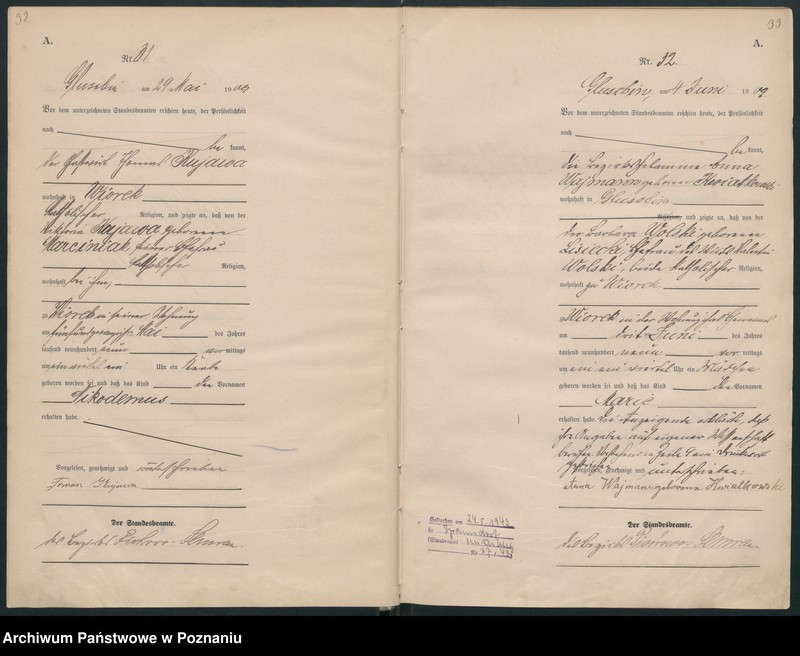 32
A.
Nr. 31.
Gluschin am 29 Mai 1909
Vor dem unterzeichneten Standesbeamten erschien heute, der Persönlichkeit
nach
be kannt,
der Thomas Kujawa
wohnhaft in Wiorek
katholischer Religion, und zeigte an, daß von der
Viktoria Kujawa geborenen
Marciniak seiner Ehefrau
katholischer Religion,
wohnhaft bei ihm,
zu Wiorek in seiner Wohnung
am fünfundzwanzigsten Mai des Jahres
tausend neunhundert neun vor mittags
um ein Uhr ein Knabe
geboren worden sei und daß das Kind den Vornamen
Nikodemus
erhalten habe.
Vorgelesen, genehmigt und unterschrieben
Tomasz Kujawa
Der Standesbeamte.
des Bezirks
33
A.
Nr. 32.
Gluschin, am 4. Juni 1909
Vor dem unterzeichneten Standesbeamten erschien heute, der Persönlichkeit
nach
be kannt,
die Bezirkshebamme Anna
Wajmann geborene Kwiatkowski
wohnhaft in Gluschin
Religion, und zeigte an, daß von der
der Barbara Wolski geborenen
Lisiecki, Ehefrau des Valentin
Wolski, beide katholischer Religion,
wohnhaft zu Wiorek
zu Wiorek in der Wohnung ihres Ehemannes
am dritten Juni des Jahres
tausend neunhundert neun vor mittags
um ein viertel Uhr ein Mädchen
geboren worden sei und daß das Kind den Vornamen
Marie
erhalten habe. Die Anzeigende erklärte, daß
ihre Angaben auf eigener Wissenschaft
beruhen. Vorstehend in Zeile 9 ein Druckwort
gestrichen.
Vorgelesen, genehmigt und unterschrieben:
Anna Wajmann geborene Kwiatkowski
Der Standesbeamte.
des Bezirks
Gestorben am 24.5.1943
in
(Standesamt
Nr. 37/43)
Archiwum Państwowe w Poznaniu